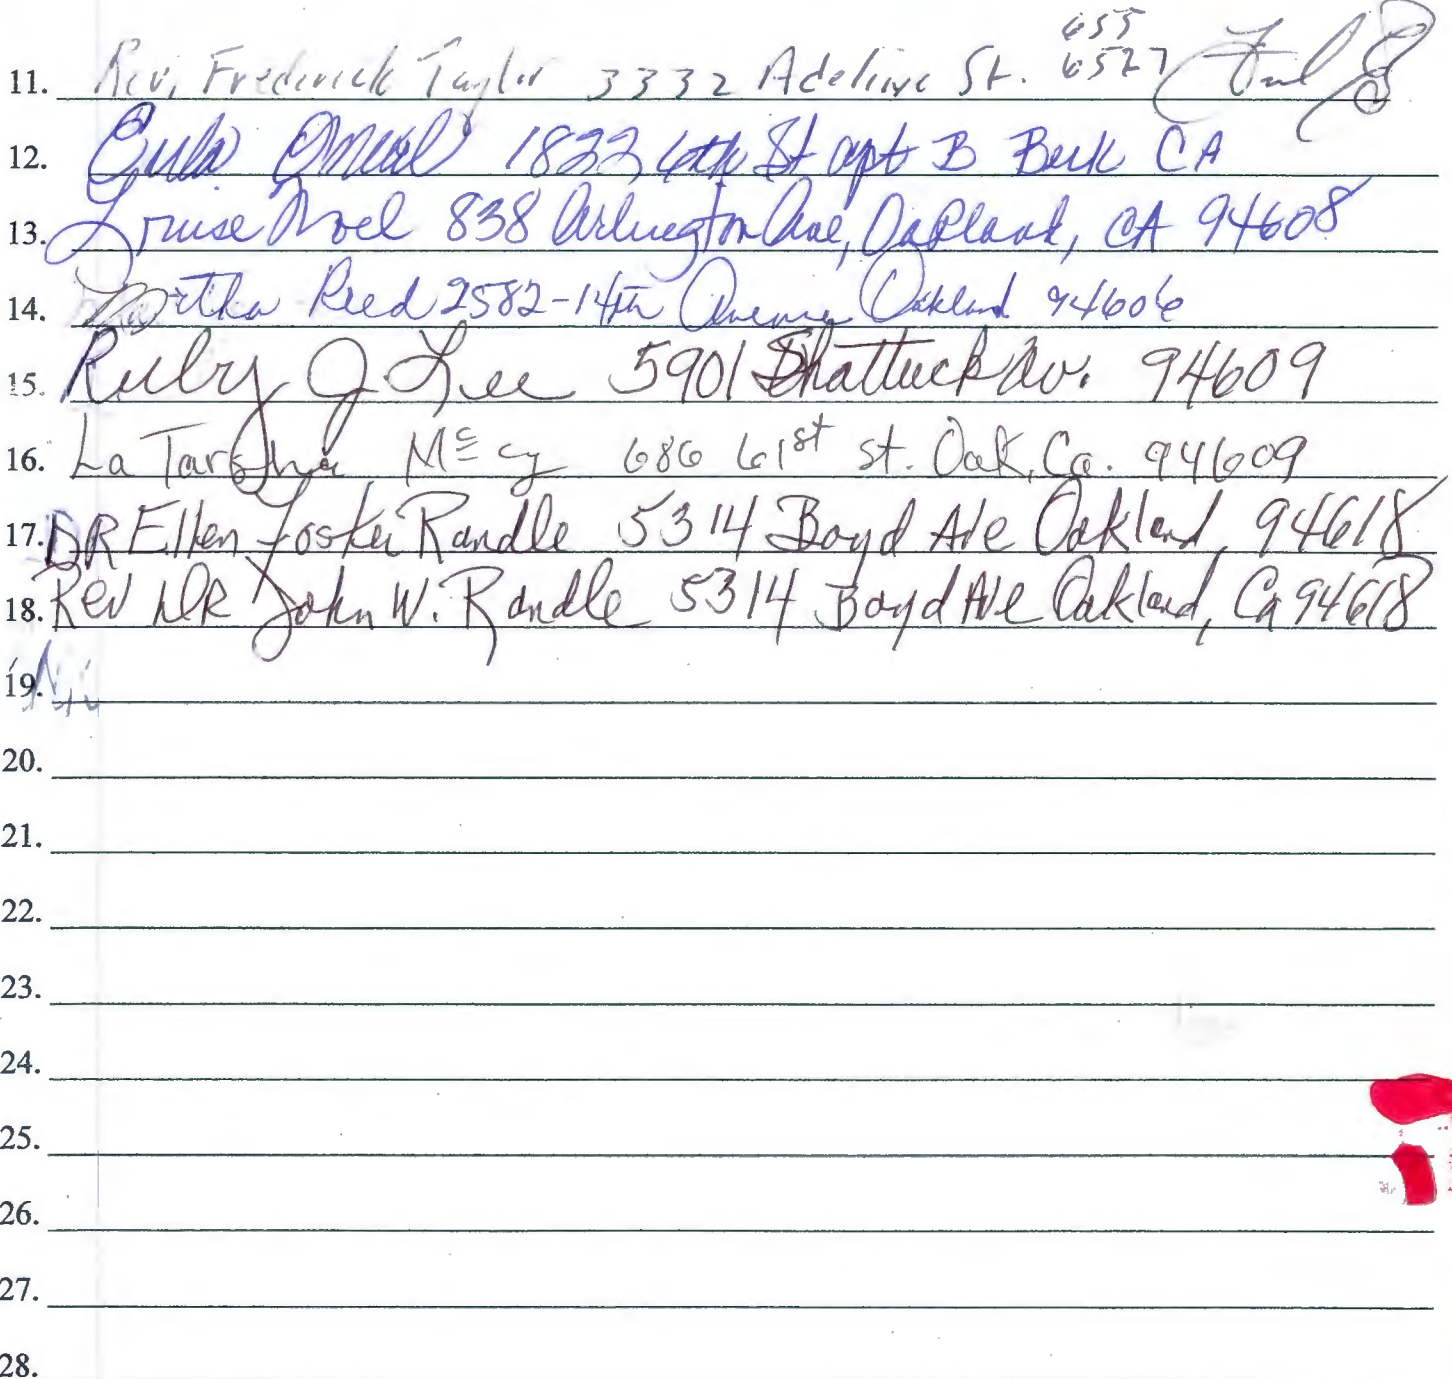 655
11. Rev. Frederick Taylor 3332 Adeline St. 6527
12. Eula Oneal 1822 6th St apt B Berk CA
13. Louise Noel 838 Arlington Ave, Oakland, CA 94608
14. Martha Reed 2582-14th Avenue Oakland 94606
15. Ruby J Lee 5901 Shattuck Av. 94609
16. La Tarsha 686 61st st. Oak, Ca. 94609
17. DR Ellen Foster Randle 5314 Boyd Ave Oakland, 94618
18. Rev DR John W. Randle 5314 Boyd Ave Oakland, Ca 94618
19.
20.
21.
22.
23.
24.
25.
26.
27.
28.